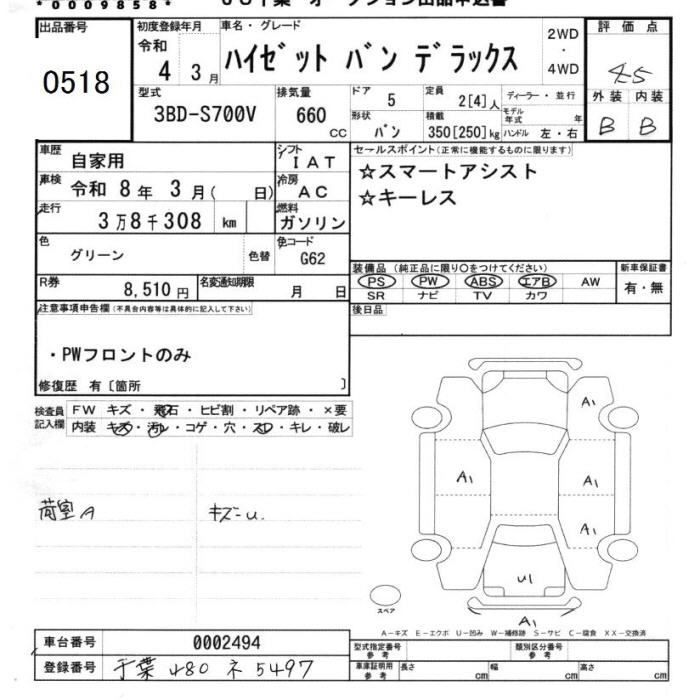 *0009858*
出品番号
0518
初度登録年月
令和
4 3月
車名・グレード
ハイゼット バン デラックス
2WD
・
4WD
評価点
4.5
外装 内装
B B
型式
3BD-S700V
排気量
660
CC
ドア
5
定員
2[4]人
ディーラー・並行
形状
バン
積載
350[250]kg
モデル年式 年
ハンドル 左・右
車歴
自家用
シフト
IAT
車検
令和 8年 3月( 日)
冷房
AC
走行
3万8千308 km
燃料
ガソリン
色
グリーン
色替
色コード
G62
R券
8,510円
名変通知期限
月 日
セールスポイント(正常に機能するものに限ります)
☆スマートアシスト
☆キーレス
装備品(純正品に限り○をつけてください)
PS PW ABS エアB AW
SR ナビ TV カワ
新車保証書
有・無
後日品
注意事項申告欄(不具合内容等は具体的に記入して下さい)
・PWフロントのみ
修復歴 有〔箇所 〕
検査員
記入欄
FW キズ・飛石・ヒビ割・リペア跡・×要
内装 キズ・汚レ・コゲ・穴・スレ・キレ・破レ
荷室A
キズ-U
A1
A1
A1
A1
U1
A1
スペア
A-キズ E-エクボ U-凹み W-補修跡 S-サビ C-腐食 XX-交換済
車台番号
0002494
登録番号
千葉 480 ネ 5497
型式指定番号
参考
類別区分番号
参考
車庫証明用
参考
長さ cm
幅 cm
高さ cm